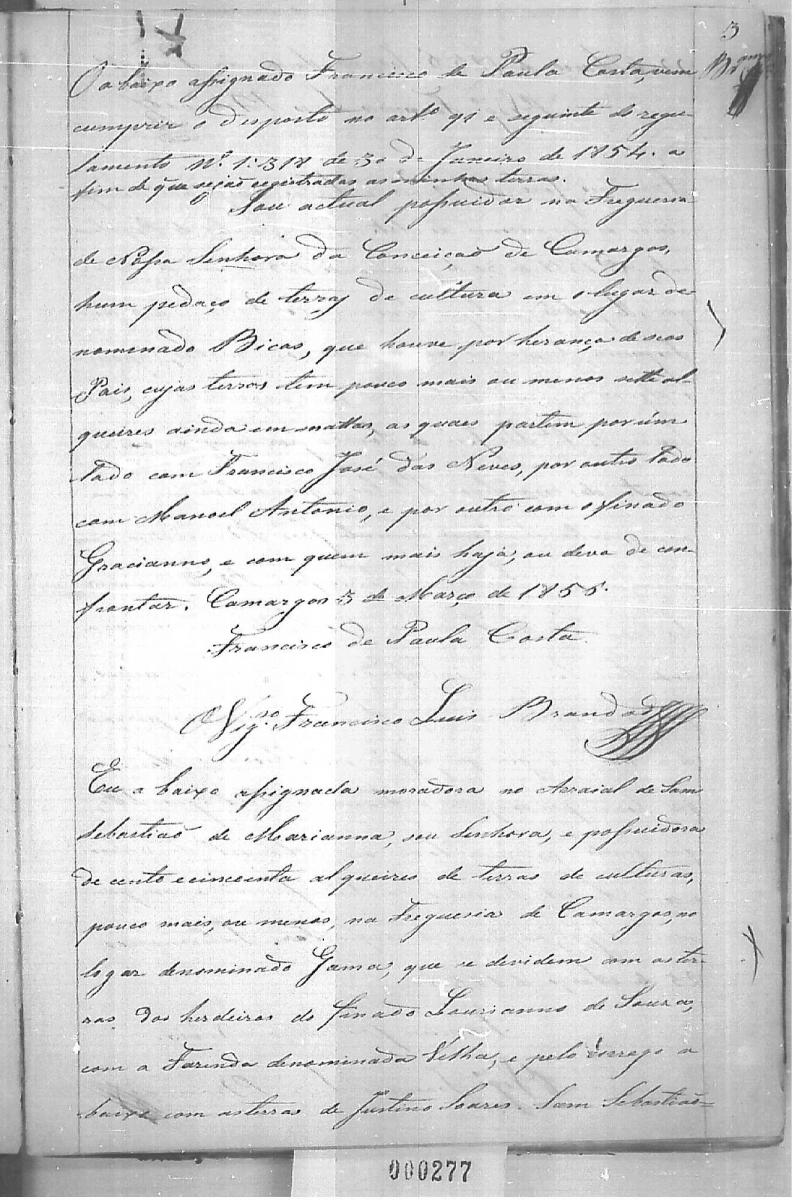 3
O a baixo assignado Francisco de Paula Costa, vem
cumprir o desposto no artº 91 e seguinte do regu-
lamento Nº 1:318 de 30 de Janeiro de 1854. a
fim de que sejão registradas as minhas terras.
Sou actual possuidor na Freguesia
de Nossa Senhora da Conceição de Camargos,
hum pedaço de terras de cultura em o lugar de-
nominado Bicas, que houve por herança de seos
Pais, cujas terras tem pouco mais ou menos sette al-
queires ainda em mattas, as quaes partem por úm
lado com Francisco José das Neves, por outro lado
com Manoel Antonio, e por outro com o finado
Gracianno, e com quem mais haja, ou deva de con-
frontar. Camargos 3 de Março de 1856.
Francisco de Paula Costa
O Vigrº Francisco Luis Brandaõ
Eu a baixo assignada moradora no Arraial de Sam
Sebastiaõ de Marianna, sou Senhora, e possuidora
de cento e cincoenta alqueires de terras de culturas,
pouco mais, ou menos, na Freguesia de Camargos, no
logar denominado Gama, que se devidem com as ter-
ras dos herdeiros do finado Lourianno de Souza,
com a Fazenda denominada Velha, e pelo córrego a
baixo com as terras de Justino Soares. Sam Sebastiaõ=
000277